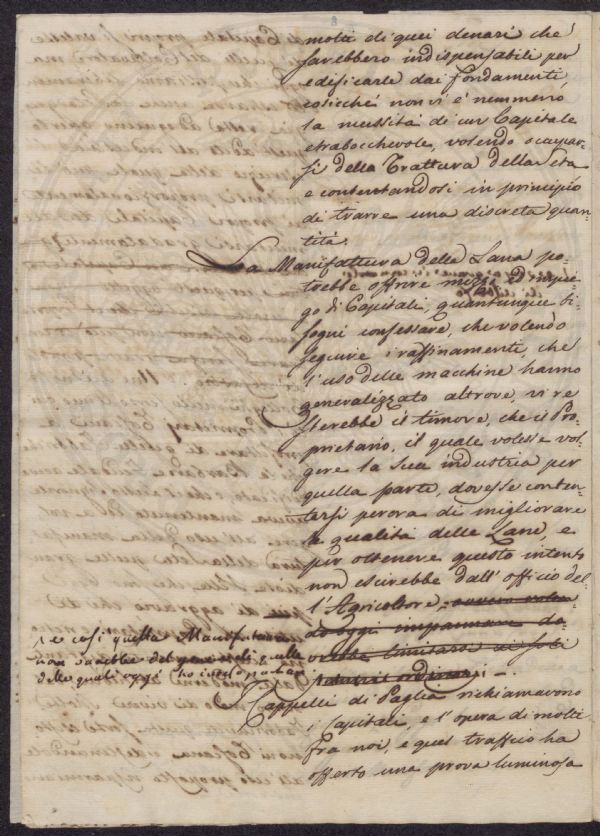 molti di quei denari che
sarebbero indispensabili per
edificarle dai fondamenti
cosicché non vi é nemmenò
la necessitá di un Capitale
strabocchevole, volendo occupar-
si della Trattura della Seta
e contentandosi in principio
di trarre una discreta quan-
titá.
La Manifattura della Lana po-
trebbe offrire mezzi d'impie-
go di Capitali, quantunque bi-
sogni confessare, che volendo
seguire i raffinamenti, che
l'uso delle macchine hanno
generalizzato altrove, vi re
sterebbe il timore, che il Pro-
prietario, il quale volesse vol-
gere la sua industria per
quella parte, dovesse conten-
tarsi per ora di migliorare
la qualitá delle Lane, e
per ottenere questo intento
non escirebbe dall'officio del
l'Agricoltore, ovvero volen
do oggi impannare do-
vrebbe limitarsi ai soli
panni ordinari.
e così questa Manifattura
non sarebbe del genere di quelle
delle quali oggi ho inteso parlare
Cappelli di Paglia richiamavono
i Capitali, e l'opera di molti
fra noi, e quel traffico ha
offerto una prova luminosa